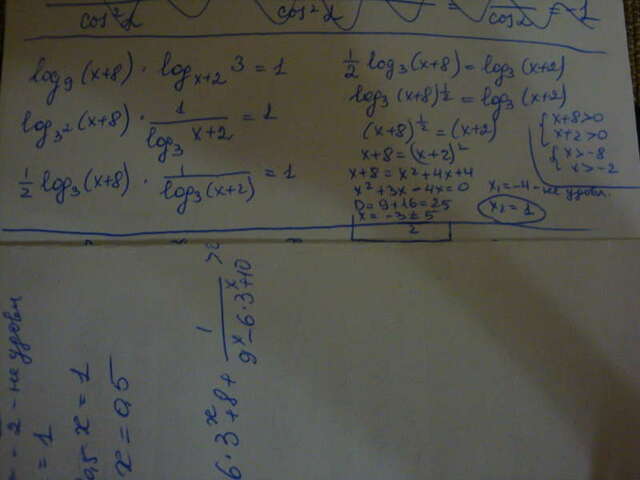 cos²α cos²α = cos²α = 1
log₉(x+8) · logₓ₊₂3 = 1
log₃²(x+8) · 1/log₃ x+2 = 1
½log₃(x+8) · 1/log₃(x+2) = 1
½ log₃(x+8) = log₃(x+2)
log₃(x+8)^½ = log₃(x+2)
(x+8)^½ = (x+2)
x+8 = (x+2)²
x+8 = x²+4x+4
x²+3x-4x=0
D = 9+16 = 25
x = -3±5/2
{x+8>0
x+2>0
{x>-8
x>-2
x₁=-4 - не удовл.
x₂ = 1
- 2 - не удовл
= 1
0,5 x = 1
x = 0,5
6·3ˣ+8+ 1/9ˣ-6·3ˣ+10 >